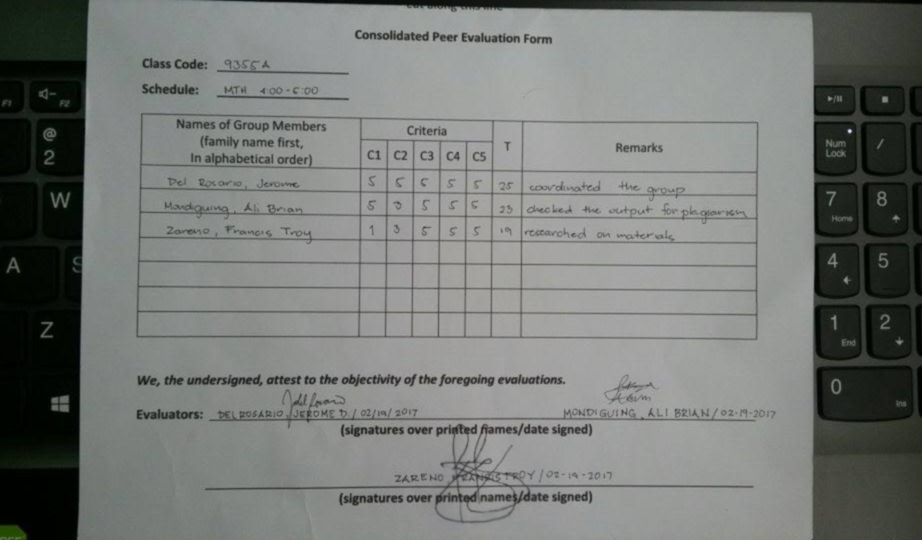 cut along this line
Consolidated Peer Evaluation Form
Class Code: 9355A
Schedule: MTH 4:00-5:00
Names of Group Members (family name first, In alphabetical order) Criteria T Remarks
C1 C2 C3 C4 C5
Del Rosario, Jerome 5 5 5 5 5 25 coordinated the group
Mondiguing, Ali Brian 5 3 5 5 5 23 checked the output for plagiarism
Zareno, Francis Troy 1 3 5 5 5 19 researched on materials
We, the undersigned, attest to the objectivity of the foregoing evaluations.
Evaluators: DEL ROSARIO, JEROME D. / 02/19/2017 MONDIGUING, ALI BRIAN / 02-19-2017
(signatures over printed names/date signed)
ZARENO FRANCIS TROY / 02-19-2017
(signatures over printed names/date signed)
F1
F2
@
2
W
A
S
Z
Num Lock
/
7 Home
8
4
5
1 End
2
0 Ins